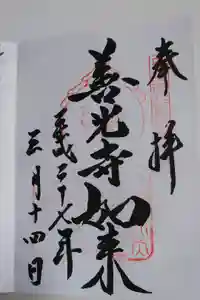 奉拝
善光寺如来
平成二十七年
三月十四日